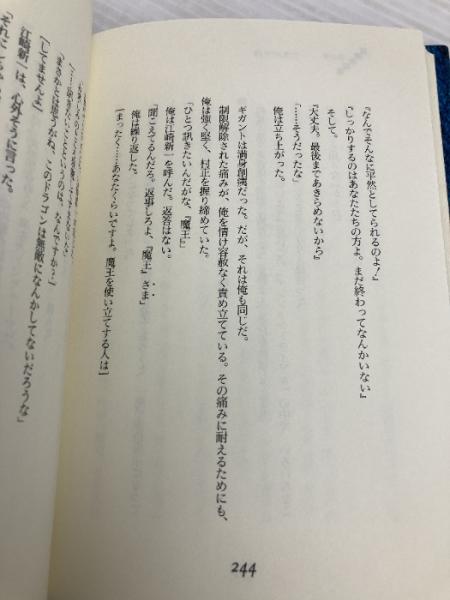 『なんでそんなに平然としてられるのよ!』
『しっかりするのはあなたたちの方よ。まだ終わってなんかいない』
そして。
『大丈夫。最後まであきらめないから』
『……そうだったな』
俺は立ち上がった。
ギガントは満身創痍だった。だが、それは俺も同じだ。
制限解除された痛みが、俺を情け容赦なく責め立てている。その痛みに耐えるためにも、
俺は強く堅く、村正を握り締めていた。
『ひとつ訊きたいんだがな、『魔王』』
俺は江崎新一を呼んだ。返答はない。
『聞こえてるんだろ。返事しろよ、『魔王』さま』
俺は繰り返した。
[まったく……あなたくらいですよ。魔王を使い立てする人は]
[なんですか?]
『まさかとは思うがね、このドラゴンは無敵になんかしてないだろうな』
[してませんよ]
江崎新一は、心外そうに言った。
244